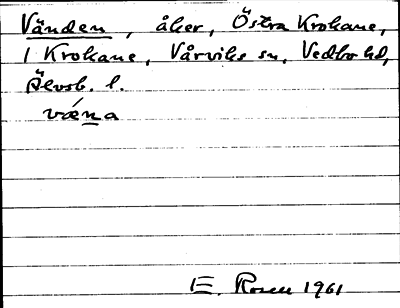 Vänden, åker, Östra Krokane,
1 Krokane, Vårviks sn, Vedbo hd,
Älvsb. l.
væna
E. Rosell 1961